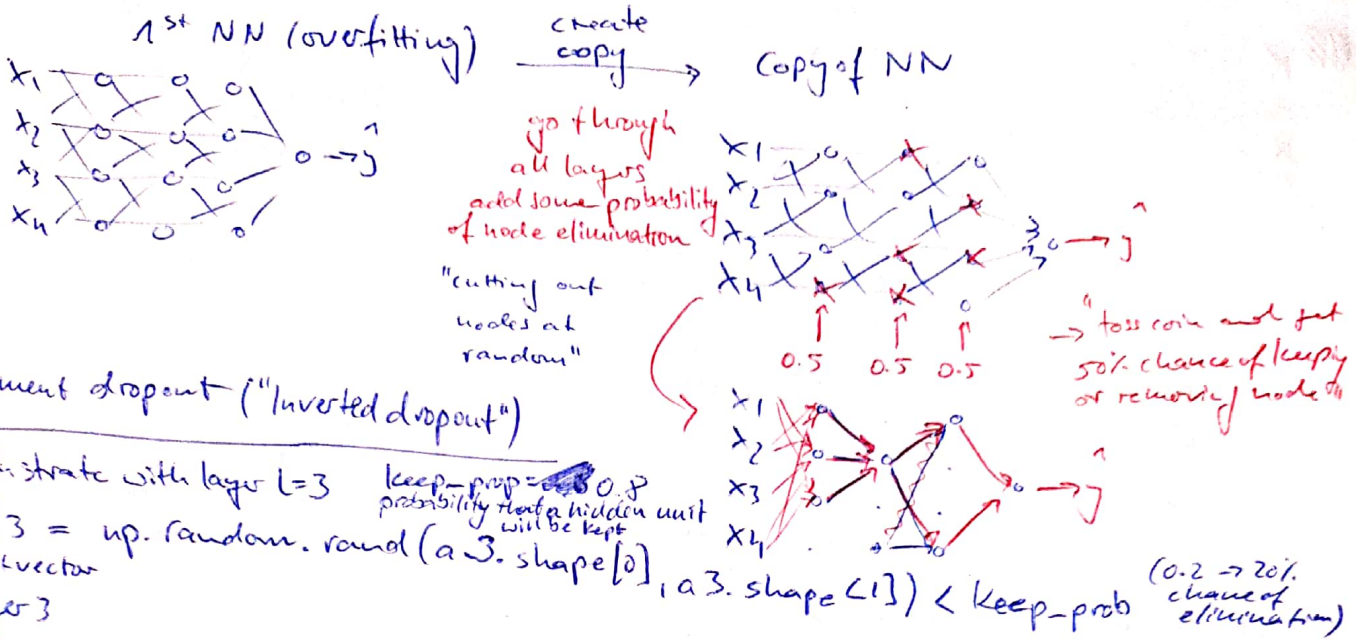 1st NN (overfitting)
create
copy
Copy of NN
x1
x2
x3
x4
ŷ
go through
all layers
add some probability
of node elimination
"cutting out
nodes at
random"
x1
x2
x3
x4
ŷ
0.5 0.5 0.5
→ "toss coin and get
50% chance of keeping
or removing node"
x1
x2
x3
x4
ŷ
ment dropout ("Inverted dropout")
strate with layer l=3 keep_prop= 0.8
probability that a hidden unit
will be kept
3 = np.random.rand(a3.shape[0], a3.shape[1]) < keep_prob
(0.2 → 20%
chance of
elimination)
vector
er 3